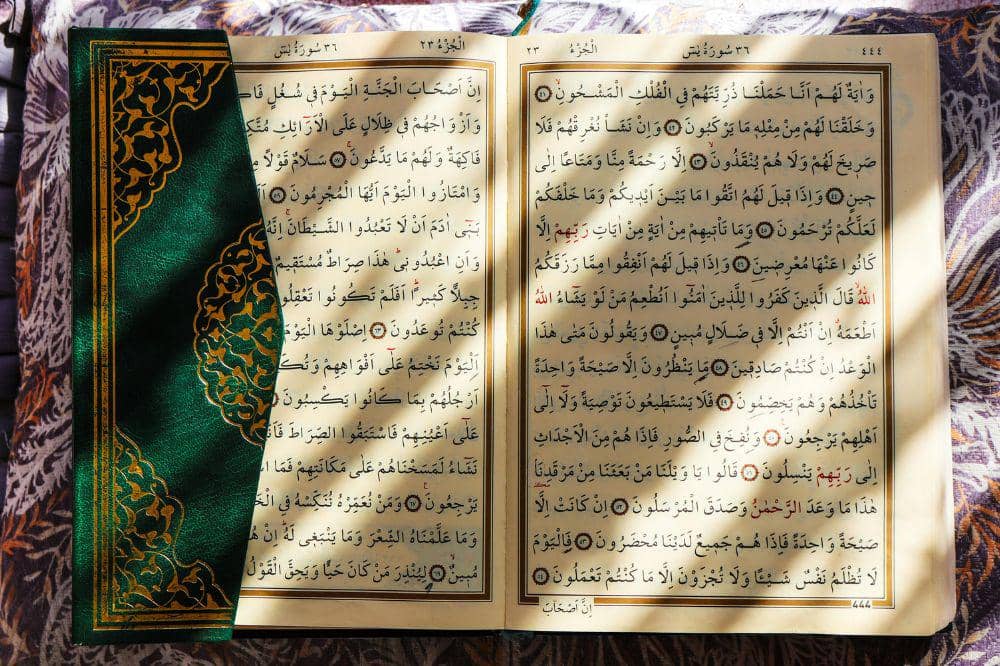 ٤٤٤ ٣٦ سُورَةُ يٰسٓ اَلْجُزْءُ ٢٣
وَاٰيَةٌ لَهُمْ اَنَّا حَمَلْنَا ذُرِّيَّتَهُمْ فِي الْفُلْكِ الْمَشْحُونِۙ ٤١
وَخَلَقْنَا لَهُمْ مِنْ مِثْلِه۪ مَا يَرْكَبُونَ ٤٢ وَاِنْ نَشَأْ نُغْرِقْهُمْ فَلَا
صَر۪يخَ لَهُمْ وَلَا هُمْ يُنْقَذُونَۙ ٤٣ اِلَّا رَحْمَةً مِنَّا وَمَتَاعًا اِلٰى
ح۪ينٍ ٤٤ وَاِذَا ق۪يلَ لَهُمُ اتَّقُوا مَا بَيْنَ اَيْد۪يكُمْ وَمَا خَلْفَكُمْ
لَعَلَّكُمْ تُرْحَمُونَ ٤٥ وَمَا تَأْت۪يهِمْ مِنْ اٰيَةٍ مِنْ اٰيَاتِ رَبِّهِمْ اِلَّا
كَانُوا عَنْهَا مُعْرِض۪ينَ ٤٦ وَاِذَا ق۪يلَ لَهُمْ اَنْفِقُوا مِمَّا رَزَقَكُمُ
اللّٰهُۙ قَالَ الَّذ۪ينَ كَفَرُوا لِلَّذ۪ينَ اٰمَنُٓوا اَنُطْعِمُ مَنْ لَوْ يَشَٓاءُ اللّٰهُ
اَطْعَمَهُۗ اِنْ اَنْتُمْ اِلَّا ف۪ي ضَلَالٍ مُب۪ينٍ ٤٧ وَيَقُولُونَ مَتٰى هٰذَا
الْوَعْدُ اِنْ كُنْتُمْ صَادِق۪ينَ ٤٨ مَا يَنْظُرُونَ اِلَّا صَيْحَةً وَاحِدَةً
تَأْخُذُهُمْ وَهُمْ يَخِصِّمُونَ ٤٩ فَلَا يَسْتَط۪يعُونَ تَوْصِيَةً وَلَٓا اِلٰٓى
اَهْلِهِمْ يَرْجِعُونَ۟ ٥٠ وَنُفِخَ فِي الصُّورِ فَاِذَا هُمْ مِنَ الْاَجْدَاثِ
اِلٰى رَبِّهِمْ يَنْسِلُونَ ٥١ قَالُوا يَا وَيْلَنَا مَنْ بَعَثَنَا مِنْ مَرْقَدِنَاۢ
هٰذَا مَا وَعَدَ الرَّحْمٰنُ وَصَدَقَ الْمُرْسَلُونَ ٥٢ اِنْ كَانَتْ اِلَّا
صَيْحَةً وَاحِدَةً فَاِذَا هُمْ جَم۪يعٌ لَدَيْنَا مُحْضَرُونَ ٥٣ فَالْيَوْمَ
لَا تُظْلَمُ نَفْسٌ شَيْـًٔا وَلَا تُجْزَوْنَ اِلَّا مَا كُنْتُمْ تَعْمَلُونَ ٥٤
444
اِنَّ اَصْحَابَ
اَلْجُزْءُ ٢٣ ٣٦ سُورَةُ يٰسٓ
اِنَّ اَصْحَابَ الْجَنَّةِ الْيَوْمَ ف۪ي شُغُلٍ
وَاَزْوَاجُهُمْ ف۪ي ظِلَالٍ عَلَى الْاَرَٓائِكِ
فَاكِهَةٌ وَلَهُمْ مَا يَدَّعُونَۚ ٥٧ سَلَامٌ قَوْلًا
وَامْتَازُوا الْيَوْمَ اَيُّهَا الْمُجْرِمُونَ ٥٩
بَن۪ٓي اٰدَمَ اَنْ لَا تَعْبُدُوا الشَّيْطَانَۚ اِنَّهُ
وَاَنِ اعْبُدُون۪يۜ هٰذَا صِرَاطٌ مُسْتَق۪يمٌ
جِبِلًّا كَث۪يرًاۜ اَفَلَمْ تَكُونُوا
كُنْتُمْ تُوعَدُونَ ٦٣ اِصْلَوْهَا الْيَوْمَ
اَلْيَوْمَ نَخْتِمُ عَلٰٓى اَفْوَاهِهِمْ
اَرْجُلُهُمْ بِمَا كَانُوا يَكْسِبُونَ
عَلٰٓى اَعْيُنِهِمْ فَاسْتَبَقُوا الصِّرَاطَ
نَشَٓاءُ لَمَسَخْنَاهُمْ عَلٰى مَكَانَتِهِمْ فَمَا
يَرْجِعُونَ۟ ٦٧ وَمَنْ نُعَمِّرْهُ نُنَكِّسْهُ فِي
وَمَا عَلَّمْنَاهُ الشِّعْرَ وَمَا يَنْبَغ۪ي لَهُۜ اِنْ
مُب۪ينٌۙ ٦٩ لِيُنْذِرَ مَنْ كَانَ حَيًّا وَيَحِقَّ الْقَوْلُ